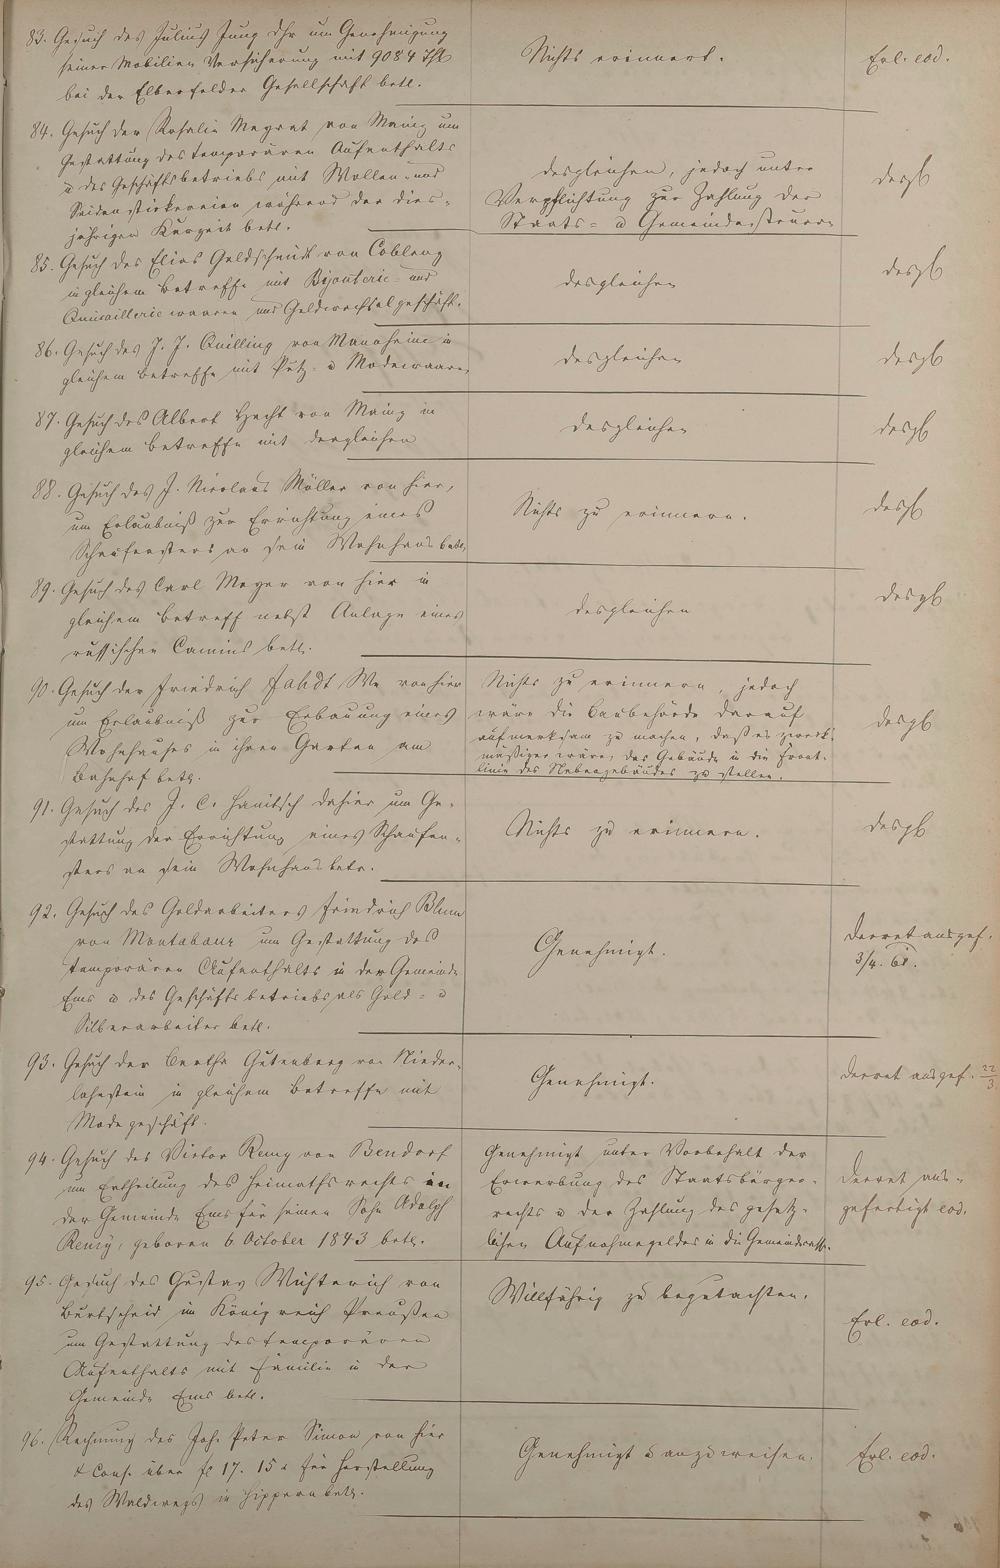 83. Gesuch des Julius Jung Ehr um Genehmigung
seiner Mobilien Versicherung mit 9084 Thlr
bei der Elberfelder Gesellschaft betr.
Nichts erinnert.
Erl. eod.
84. Gesuch der Rosalie Magnat von Mainz um
Gestattung des temporären Aufenthalts
u des Geschäftsbetriebs mit Wollen- und
Seidenstickereien während der dies-
jährigen Kurzeit betr.
desgleichen, jedoch unter
Verpflichtung zur Zahlung der
Staats- u Gemeindesteuern
desgl
85. Gesuch des Elias Goldschmidt von Coblenz
in gleichem Betreffe mit Bijouterie- und
Quincailleriewaaren und Geldwechselgeschäft.
desgleichen
desgl
86. Gesuch des J. J. Quilling von Mannheim in
gleichem Betreffe mit Putz- u Modewaaren
desgleichen
desgl
87. Gesuch des Albert Hecht von Mainz in
gleichem Betreffe mit dergleichen
desgleichen
desgl
88. Gesuch des J. Nicolaus Müller von hier,
um Erlaubniß zur Errichtung eines
Schaufensters an sein Wohnhaus betr.
Nichts zu erinnern.
desgl
89. Gesuch des Carl Meyer von hier in
gleichem Betreff nebst Anlage eines
russischen Camins betr.
desgleichen
desgl
90. Gesuch der Friedrich Jahdt We von hier
um Erlaubniß zur Erbauung eines
Wohnhauses in ihren Garten am
Bahnhof betr.
Nichts zu erinnern, jedoch
wäre die Baubehörde darauf
aufmerksam zu machen, daß es zweck-
mäßiger wäre, das Gebäude in die Front-
linie des Nebengebäudes zu stellen.
desgl
91. Gesuch des J. C. Hanitsch dahier um Ge-
stattung der Errichtung eines Schaufen-
sters an sein Wohnhaus betr.
Nichts zu erinnern.
desgl
92. Gesuch des Goldarbeiters Friedrich Blum
von Montabaur um Gestattung des
temporären Aufenthalts in der Gemeinde
Ems u des Geschäftsbetriebs als Gold- u
Silberarbeiter betr.
Genehmigt.
Decret ausgef.
3/4. 61.
93. Gesuch der Bertha Gutenberg von Nieder-
lahnstein in gleichem Betreffe mit
Modegeschäft.
Genehmigt.
Decret ausgef. 22/3
94. Gesuch des Victor Remy von Bendorf
um Ertheilung des Heimathsrechts in
der Gemeinde Ems für seinen Sohn Adolph
Remy, geboren 6 October 1843 betr.
Genehmigt unter Vorbehalt der
Erwerbung des Staatsbürger-
rechts u der Zahlung des gesetz-
lichen Aufnahmegeldes in die Gemeindecasse.
Decret aus-
gefertigt eod.
95. Gesuch des Gustav Wichterich von
Burtscheid im Königreich Preußen
um Gestattung des temporären
Aufenthalts mit Familie in der
Gemeinde Ems betr.
Willfährig zu begutachten.
Erl. eod.
96. Rechnung des Joh. Peter Simon von hier
& Cons. über fl 17. 15 x für Herstellung
des Waldwegs in Hippern betr.
Genehmigt u anzuweisen.
Erl. eod.